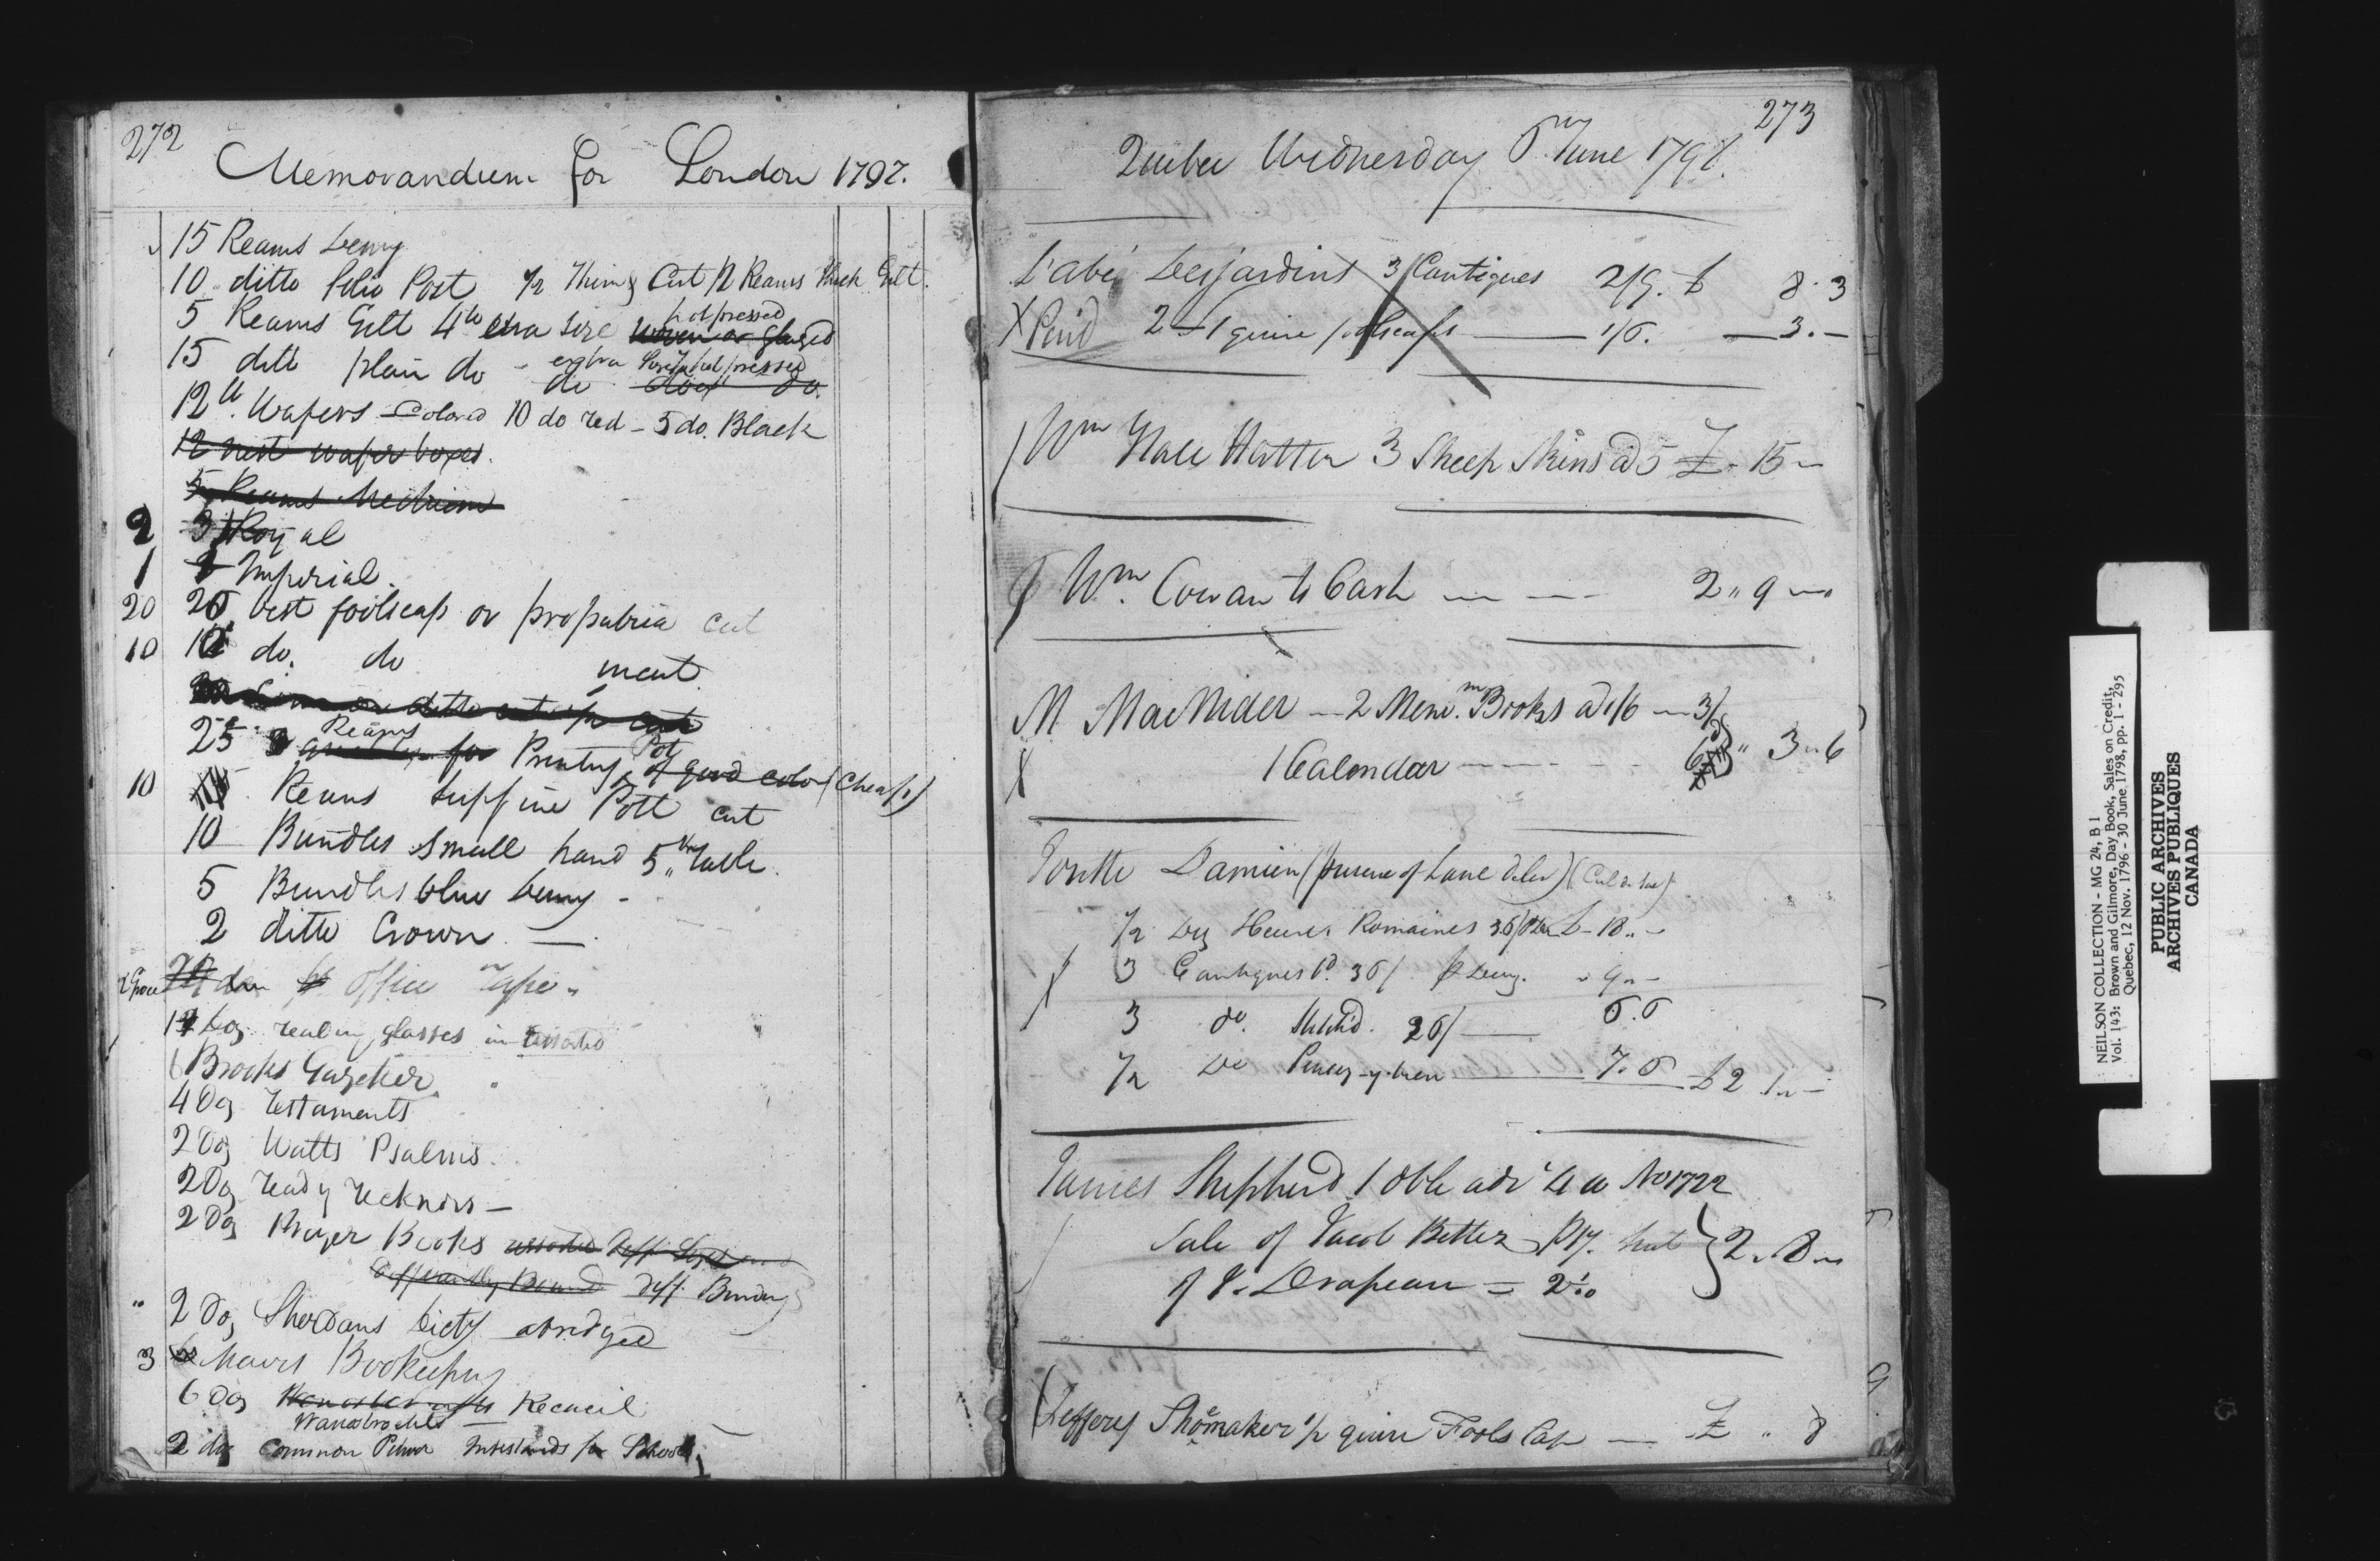 272
Memorandum for London 1797.
15 Reams Demy
10 ditto Folio Post 1/2 Thin & Cut 1/2 Reams thick Gilt.
hotpressed
5 Reams Gilt 4to extra size woven or glazed
extra size hotpressed
15 ditto plain do do do.
12 lb. Wafers Colored 10 do red - 5 do. Black
12 nest wafer boxes.
5 Reams Medium
2 3 Royal
1 2 Imperial.
20 best foolscap or propatria cut
10 10 do. do uncut
ditto
Reams
25 for Printing Pott of good color (Cheap)
10 Reams supfine Pott cut
10 Bundles small hand 5
5 Bundles blue Demy -
2 ditto Crown. —
2 Groce office Tape
Doz reading glasses in
6 Brooks Gazetteer
4 Doz Testaments
2 Doz Watts Psalms.
2 Doz ready recknors —
2 Doz Prayer Books assorted diff. Sizes and
differently Bound diff. Bindings
" 2 Doz Sherdans Dicty abridged
3 Mairs Bookeeping
6 Doz Recueil
Wanostrochts
2 doz Common Inkstands for Schools
273
Quebec Wednesday June 1797.
L'abé Desjardins 3 Cantiques 2/9. £ 8.3
X Pend 2 quire foolscaps — 1/6. — 3.-
Wm Hall Hatter 3 Sheep Skins a 5 £ - 15 -
Wm. Cowan to Cash — — 2 " 9 —"
M MacNider — 2 Mem.m Books a 1/6 — 3/
X 1 Calendar — 6d " 3 " 6
Damien
1/2 Dz Heures Romaines 36/ £ - 18 " -
X 3 Cantiques bd. 36/ p Dz. " 9 " -
3 do. Stitch'd. 26/ — 6.6
1/2 Do Pensez-y-bien — 7.6 £2 . 1 " -
James Shepherd 1 dble adv 4 w No 1722
Sale of Jacob ppty. suit
of J. Drapeau = } 2 " 8 "
Jeffery Shomaker 1/2 quire Fools Cap — £ " 8
NEILSON COLLECTION - MG 24, B 1
Vol. 143: Brown and Gilmore, Day Book, Sales on Credit,
Quebec, 12 Nov. 1796 - 30 June 1798, pp. 1 - 295
PUBLIC ARCHIVES
ARCHIVES PUBLIQUES
CANADA